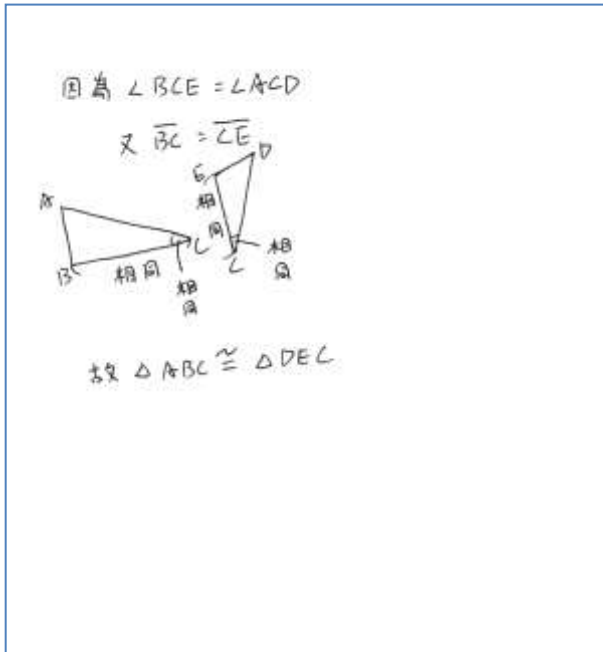 因為 ∠BCE = ∠ACD
又 BC = CE
A
B
C
相同
相同
E
D
C
相同
相同
故 △ABC ≅ △DEC